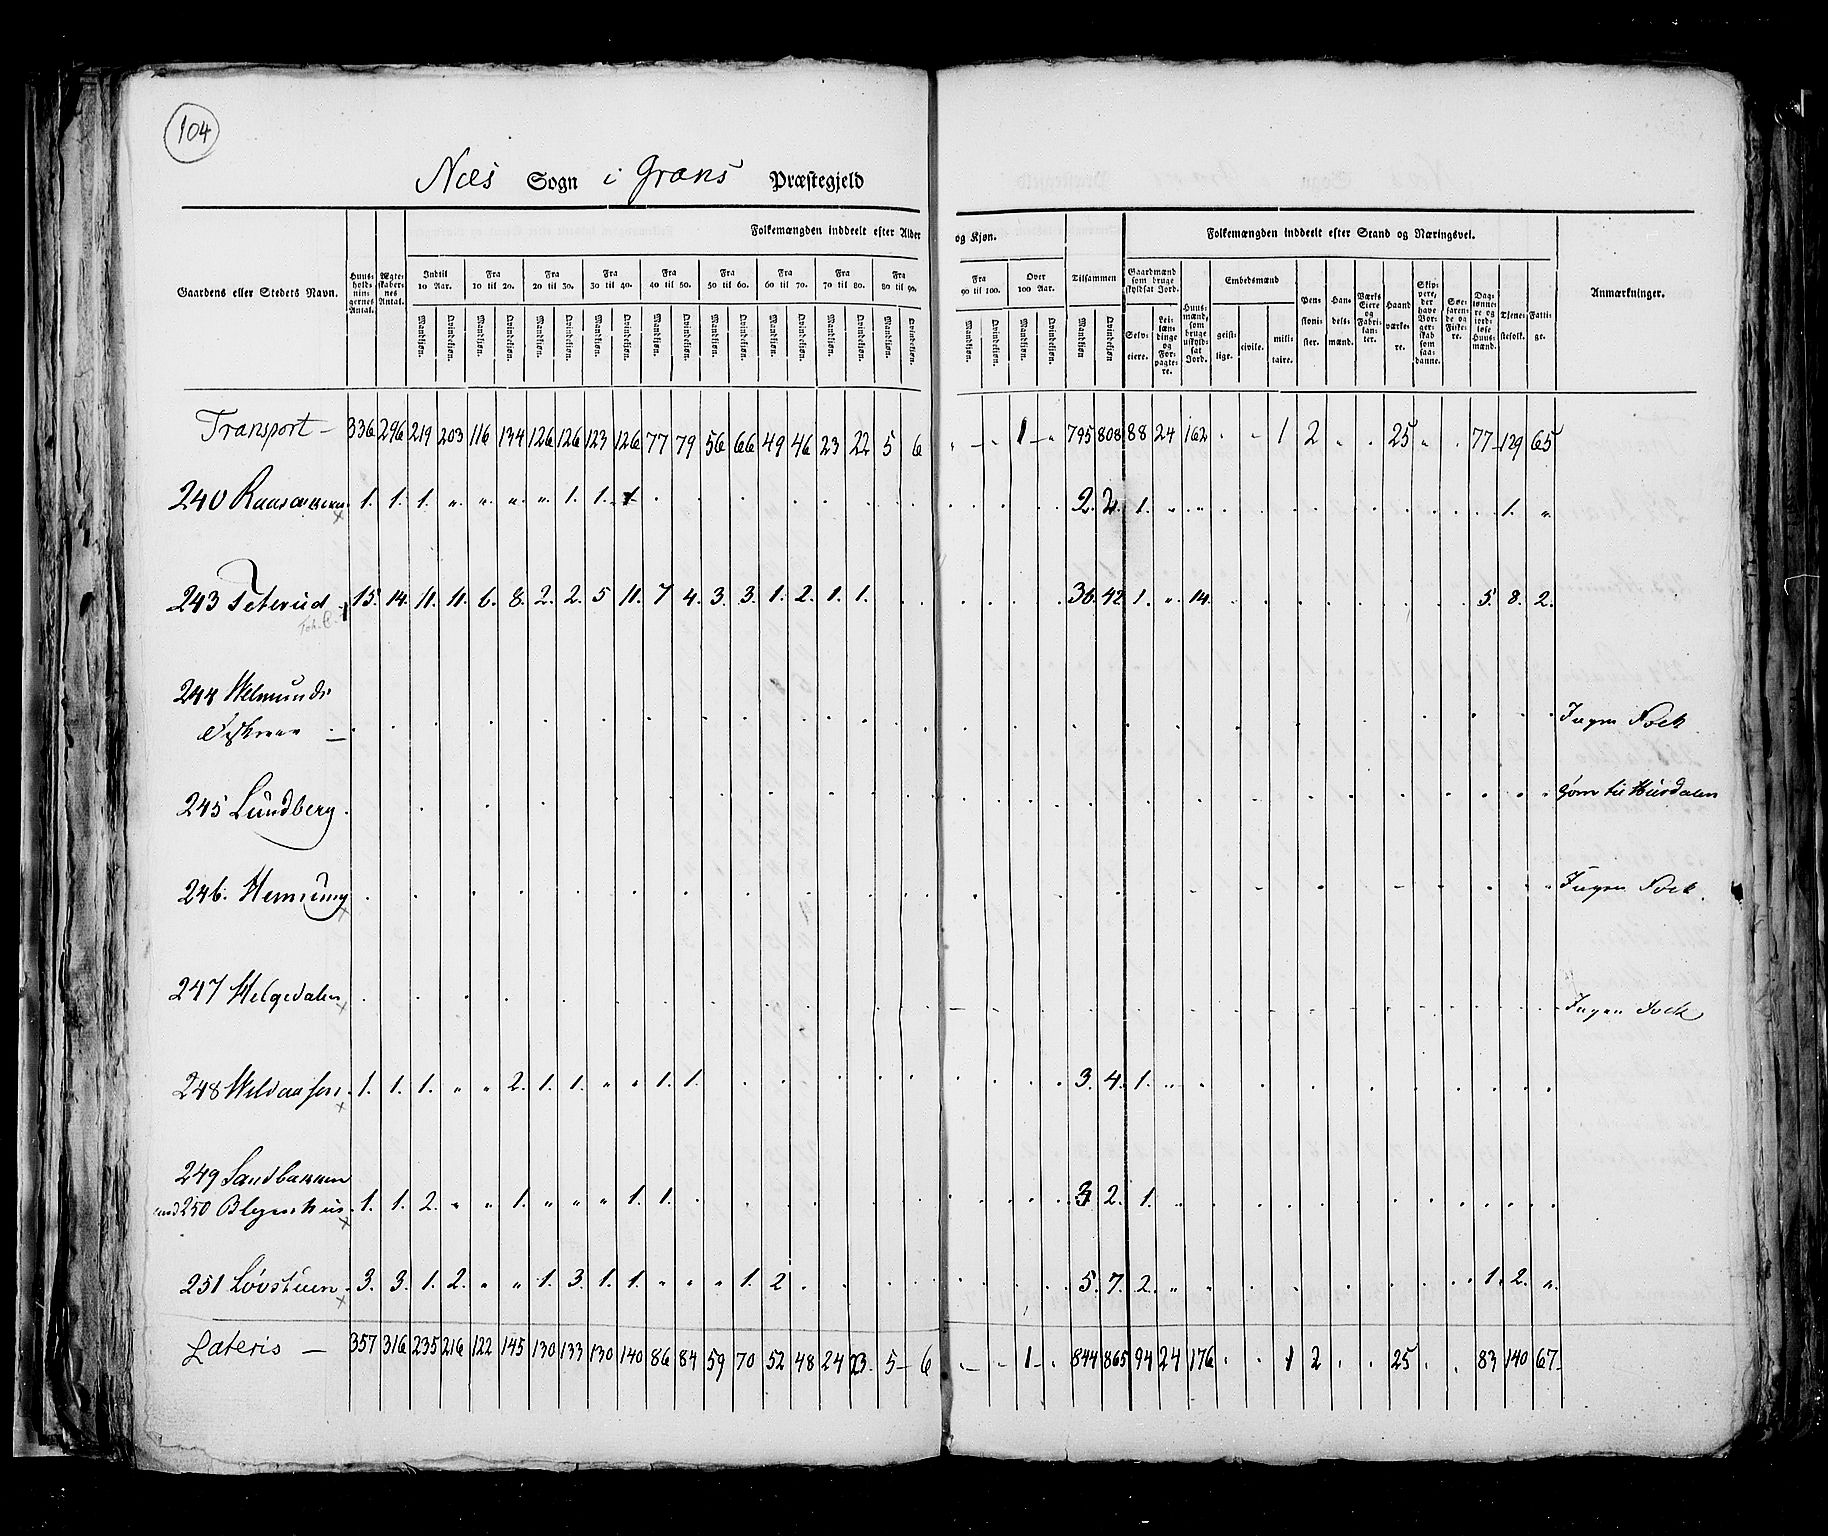 104
Næs Sogn i Grans Præstegjeld
Folkemængden inddeelt efter Alder og Kjøn. Folkemængden inddeelt efter Stand og Næringsvei.
Gaardens eller Stedets Navn. Huusholdningernes Antal. Ægteskabernes Antal. Indtil 10 Aar. Fra 10 til 20. Fra 20 til 30. Fra 30 til 40. Fra 40 til 50. Fra 50 til 60. Fra 60 til 70. Fra 70 til 80. Fra 80 til 90. Fra 90 til 100. Over 100 Aar. Tilsammen Gaardmænd som bruge skyldsat Jord. Huusmænd, som bruge uskyldsat Jord. Embedsmænd Pensionister. Handelsmænd. Værks Eiere og Fabrikanter. Haandværkere. Skippere, der have Borgerskab som saadanne. Søefarende og Fiskere. Daglønnere og jordløse Huusmænd. Tjenestefolk. Fattige. Anmærkninger.
Mandkjøn. Qvindekjøn. Mandkjøn. Qvindekjøn. Mandkjøn. Qvindekjøn. Mandkjøn. Qvindekjøn. Mandkjøn. Qvindekjøn. Mandkjøn. Qvindekjøn. Mandkjøn. Qvindekjøn. Mandkjøn. Qvindekjøn. Mandkjøn. Qvindekjøn. Mandkjøn. Qvindekjøn. Mandkjøn. Qvindekjøn. Mandkjøn. Qvindekjøn Selveiere. Leilændinge og Forpagtere. geistlige. civile. militaire.
Transport – 336 296 219 203 116 134 126 126 123 126 77 79 56 66 49 46 23 22 5 6 „ – – 1 – „ 795 808 88 24 162 „ „ 1 2 „ „ 25 „ „ 77 139 65
240 1. 1. 1. „ „ „ „ 1. 1. 1 2. 2. 1. „ „ 1. „
243 Teterud 15. 14. 11. 11. 6. 8. 2. 2. 5 11. 7 4. 3. 3. 1. 2. 1. 1. 36. 42. 1. „ 14. 5. 8. 2.
244 Welmunds
Ingen Folk
245 Lundberg. Hurdalen
246. Hennung Ingen Folk.
247 Helgedalen Ingen Folk
248 1. 1. 1. „ „ 2. 1. 1. „ „ 1. 1. 3. 4. 1. „ „
249 Sandbakken
250 1. 1. 2. „ „ 1. „ „ „ 1. 1. 3 2. 1. „
251 Løvstuen 3. 3. 1. 2. „ „ 1. 3. 1. 1. „ „ „ 1. 2 5. 7. 2. „ „ 1. 2. „
Lateris – 357 316 235 216 122 145 130 133 130 140 86 84 59 70 52 48 24 23. 5 – 6 „ – – 1 – „ 844 865 94 24 176 „ „ 1 2 „ „ 25 „ „ 83 140 67